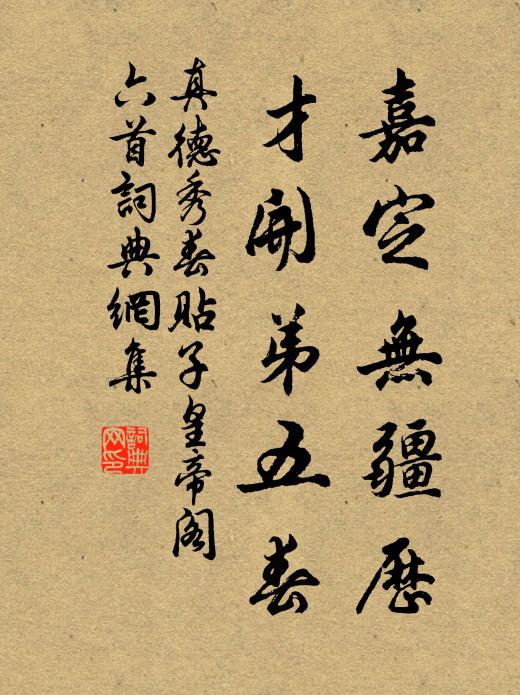 嘉定無疆歷
才開弟五春
真德秀春貼子皇帝閣
六首詞典網集
詞典
网印